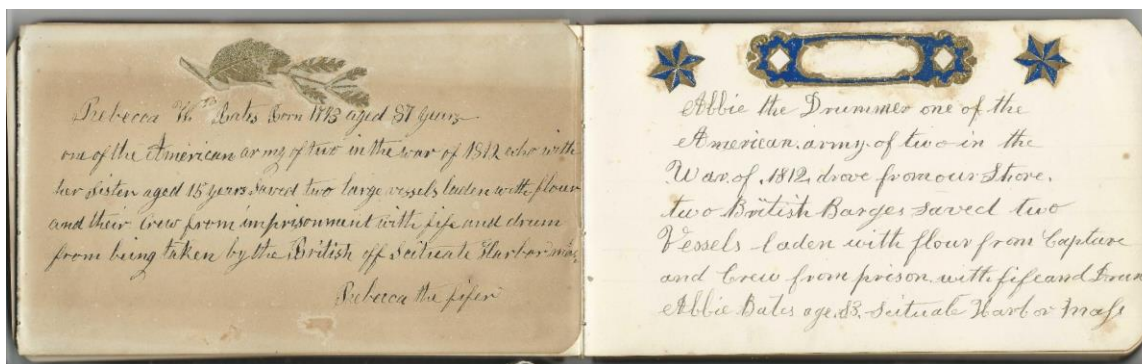 Rebecca W. Bates Born 1793 aged 87 years
one of the American army of two in the war of 1812 who with
her sister aged 15 years saved two large vessels laden with flour
and their Crew from imprisonment with fife and drum
from being taken by the British off Scituate Harbor Mass
Rebecca the fifer
Abbie the Drummer one of the
American army of two in the
War of 1812 drove from our Shore
two British Barges saved two
Vessels laden with flour from Capture
and Crew from prison with fife and Drum
Abbie Bates age 83 Scituate Harbor Mass